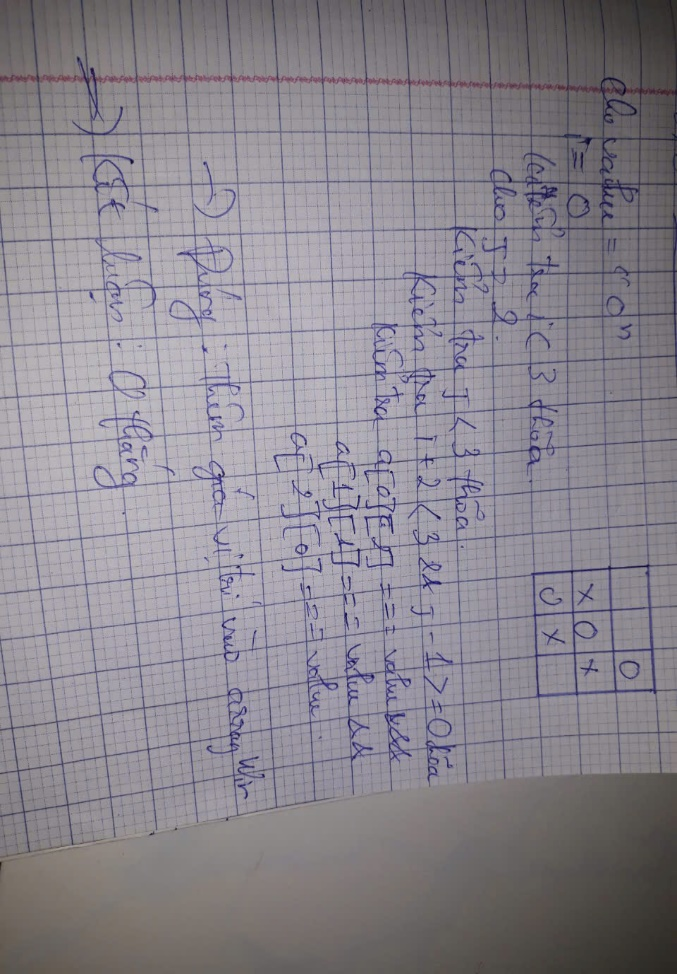 Cho value = "O"
i = 0
kiểm tra i < 3 thỏa.
Cho j = 2.
Kiểm tra j < 3 thỏa.
Kiểm tra i + 2 < 3 && j - 1 >= 0 thỏa
Kiểm tra a[0][2] === value &&
a[1][1] === value &&
a[2][0] === value.
→ Đúng: Thêm giá vị trí vào array Win
→ Kết luận: O thắng.
O
X O X
O X